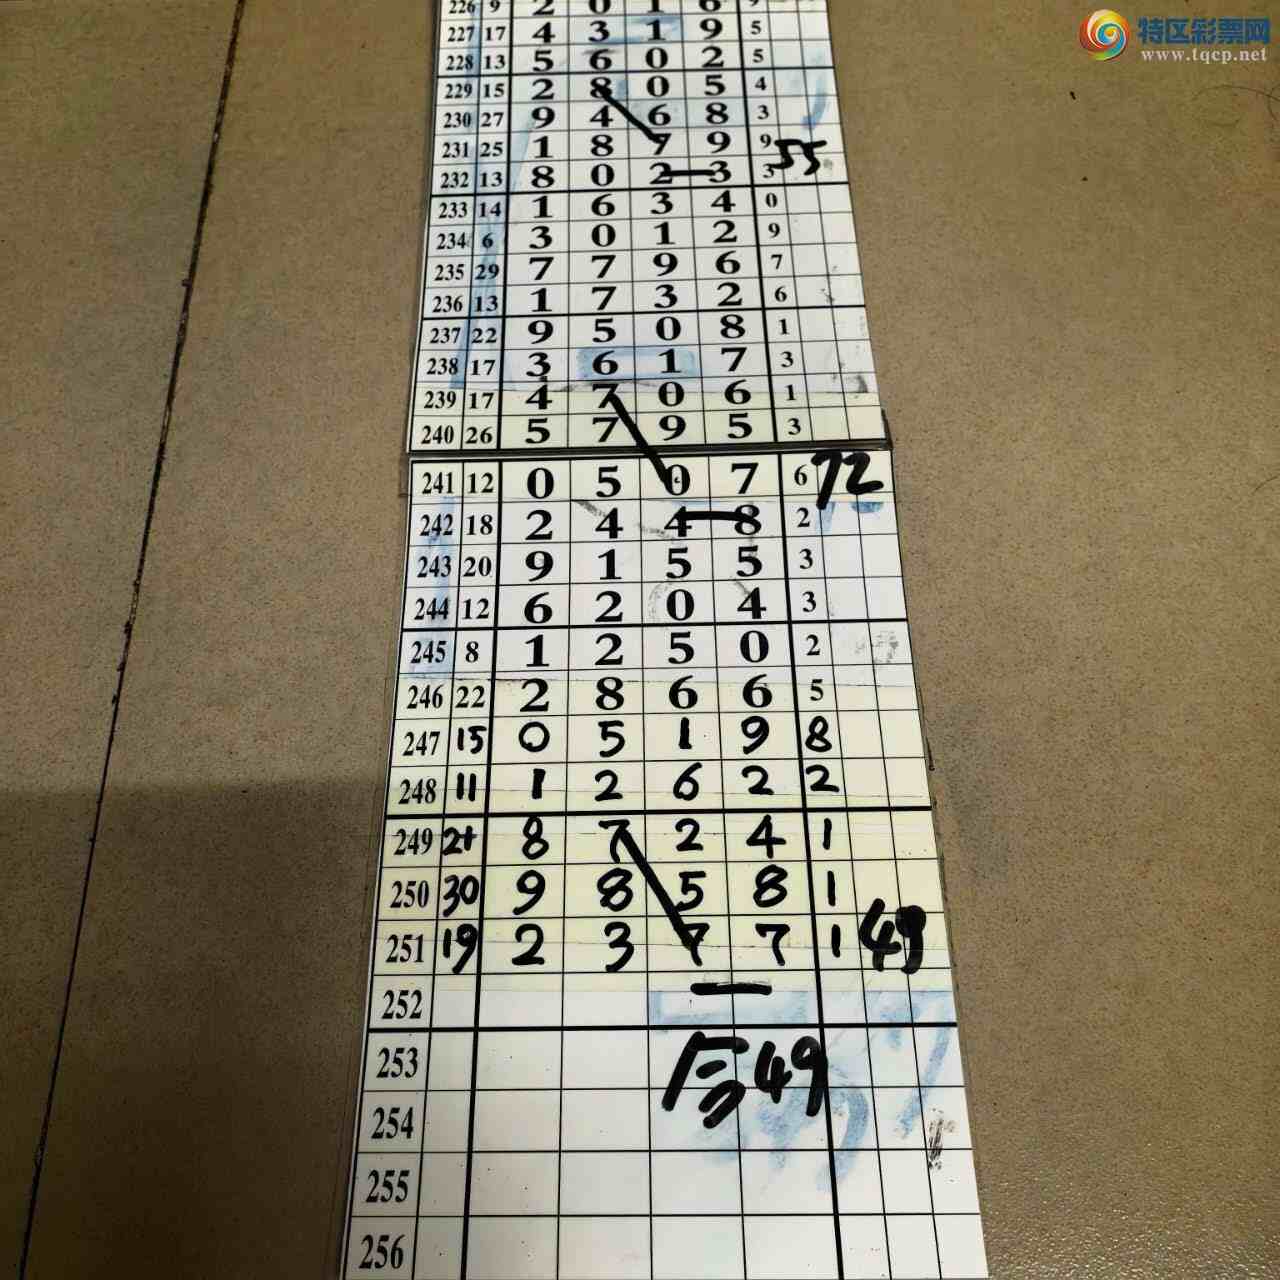 特区彩票网
www.tqcp.net
226 9 2 0 1 6 9
227 17 4 3 1 9 5
228 13 5 6 0 2 5
229 15 2 8 0 5 4
230 27 9 4 6 8 3
231 25 1 8 7 9 9 55
232 13 8 0 2 3 3
233 14 1 6 3 4 0
234 6 3 0 1 2 9
235 29 7 7 9 6 7
236 13 1 7 3 2 6
237 22 9 5 0 8 1
238 17 3 6 1 7 3
239 17 4 7 0 6 1
240 26 5 7 9 5 3
241 12 0 5 0 7 6 72
242 18 2 4 4 8 2
243 20 9 1 5 5 3
244 12 6 2 0 4 3
245 8 1 2 5 0 2
246 22 2 8 6 6 5
247 15 0 5 1 9 8
248 11 1 2 6 2 2
249 21 8 7 2 4 1
250 30 9 8 5 8 1
251 19 2 3 7 7 1 49
252
253 49
254
255
256